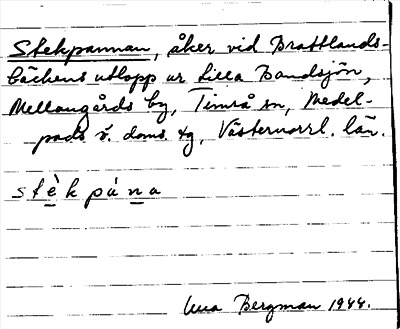 Stekpannan, åker vid Brattlands-
bäckens utlopp ur Lilla Bandsjön,
Mellangårds by, Timrå sn, Medel-
pads v. doms. tg, Västernorrl. län.
stè̱k pà ṉ a
Una Bergman 1944.